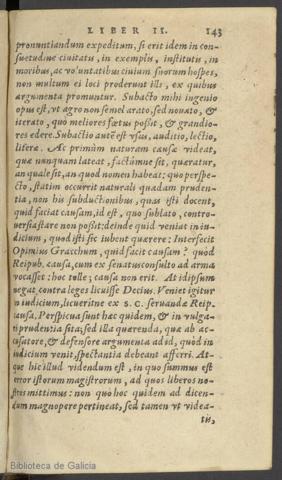 LIBER II. 143
pronuntiandum expeditum, si erit idem in con-
suetudine ciuitatis, in exemplis, institutis, in
moribus, ac voluntatibus ciuium suorum hospes,
non multum ei loci proderunt illi, ex quibus
argumenta promuntur. Subacto mihi ingenio
opus est, vt agro non semel arato, sed nouato, &
iterato, quo meliores fœtus possit, & grandio-
res edere. Subactio autē est vsus, auditio, lectio,
literæ. Ac primùm naturam causæ videat,
quæ nunquam lateat, factúmne sit, quæratur,
an quale sit, an quod nomen habeat: quo perspe-
cto, statim occurrit naturali quadam pruden-
tia, non his subductionibus, quas isti docent,
quid faciat causam, id est, quo sublato, contro-
uersia stare non possit: deinde quid veniat in iu-
dicium, quod isti sic iubent quærere: Interfecit
Opimius Gracchum, quid facit causam? quòd
Reipub. causa, cum ex senatusconsulto ad arma
vocasset: hoc tolle; causa non erit. At id ipsum
negat contra leges licuisse Decius. Veniet igitur
in iudicium, licueritne ex S. C. seruandæ Reip.
causa. Perspicua sunt hæc quidem, & in vulga-
ri prudentia sita; sed illa quærenda, quæ ab ac-
cusatore, & defensore argumenta ad id, quod in
iudicium venit, spectantia debeant afferri. At-
que hîc illud videndum est, in quo summus est
error istorum magistrorum, ad quos liberos no-
stros mittimus: non quò hoc quidem ad dicen-
dum magnopere pertineat, sed tamen vt videa-
tis,
Biblioteca de Galicia